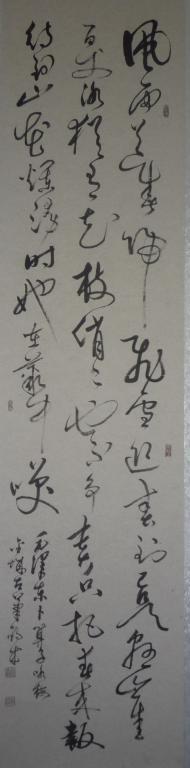 風雨送春歸飛雪迎春到已是懸崖
百丈冰猶有花枝俏〻也不争春只把春来報
待到山花爛漫時她在叢中笑
毛澤東卜算子詠梅